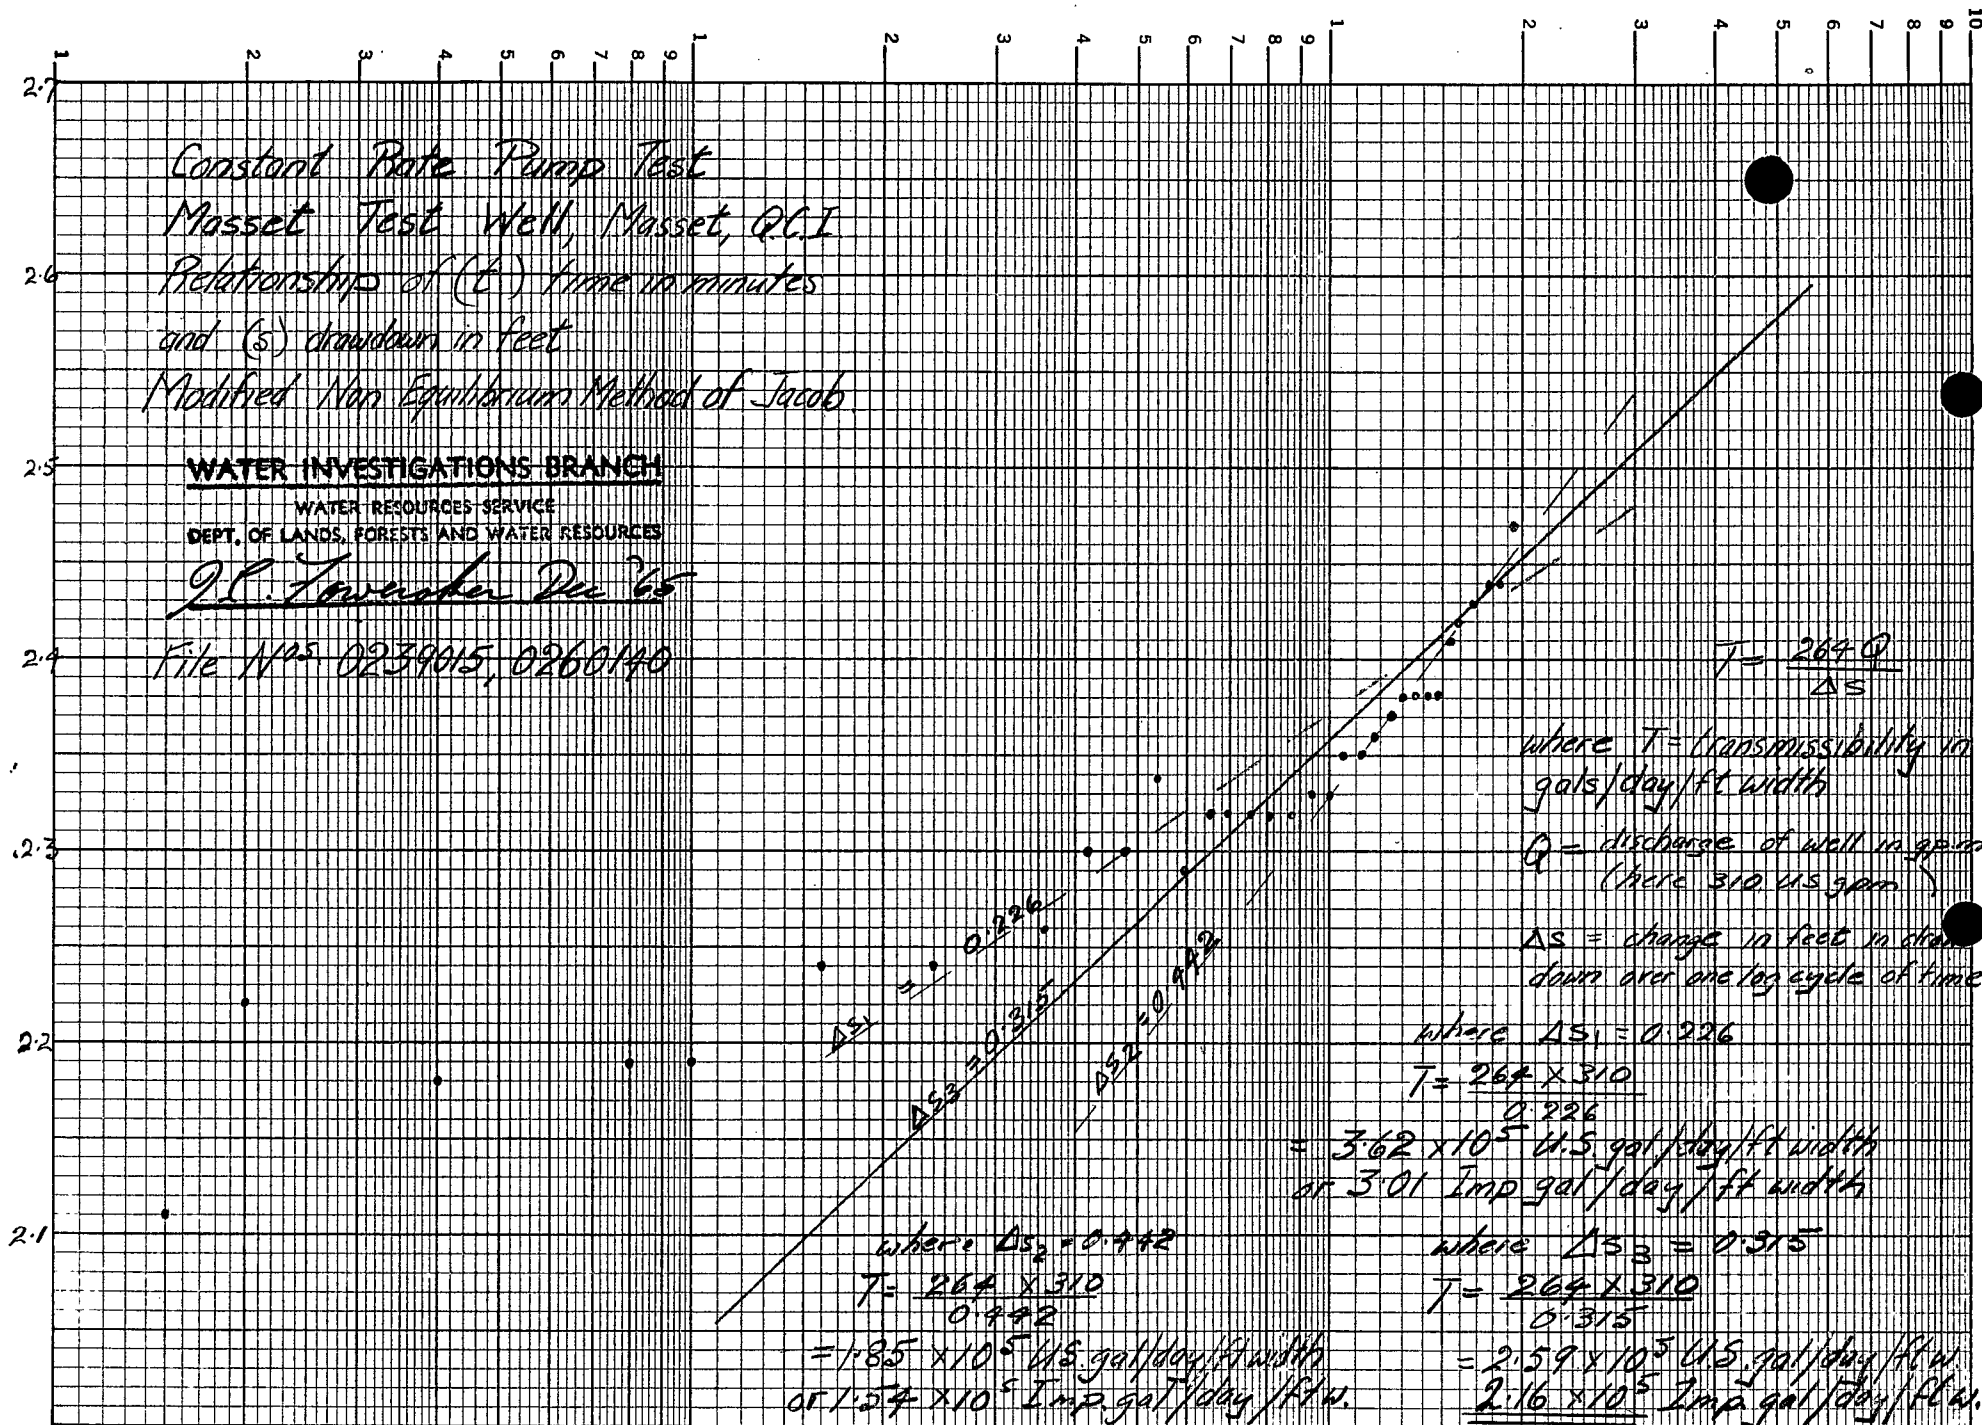 1 2 3 4 5 6 7 8 9 1 2 3 4 5 6 7 8 9 1 2 3 4 5 6 7 8 9 10
2.7
Constant Rate Pump Test
Masset Test Well, Masset, Q.C.I
2.6
Relationship of (t) time in minutes
and (s) drawdown in feet
Modified Non Equilibrium Method of Jacob
2.5
WATER INVESTIGATIONS BRANCH
WATER RESOURCES SERVICE
DEPT. OF LANDS, FORESTS AND WATER RESOURCES
Dec '65
2.4
File Nos. 0239015, 0260140
T = 264 Q
Δs
where T = transmissibility in
gals/day/ft width
2.3
Q = discharge of well in gpm
(here 310 US gpm)
Δs = change in feet in
down over one log cycle of time
Δs1 = 0.226
Δs3 = 0.315
Δs2 = 0.442
2.2
where Δs1 = 0.226
T = 264 X 310
0.226
= 3.62 x 10⁵ U.S. gal/day/ft width
or 3.01 Imp gal/day/ft width
2.1
where Δs2 = 0.442
T = 264 X 310
0.442
= 1.85 x 10⁵ US. gal/day/ft width
or 1.54 x 10⁵ Imp. gal/day/ft w.
where Δs3 = 0.315
T = 264 X 310
0.315
= 2.59 x 10⁵ US. gal/day/ft w.
2.16 x 10⁵ Imp. gal/day/ft w.